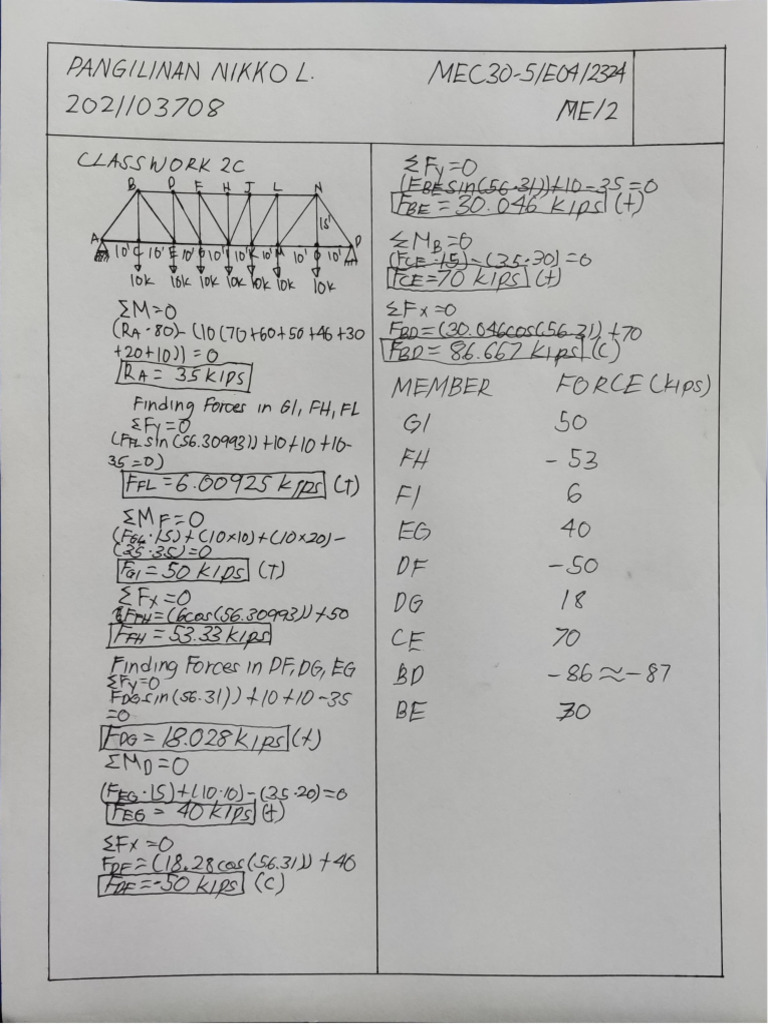 PANGILINAN NIKKO L.
MEC30-5/E04/2324
2021103708
ME/2
CLASSWORK 2C
B D F H J L N
15'
A 10' C 10' E 10' G 10' I 10' K 10' M 10' O 10' P
10K 10K 10K 10K 10K 10K 10K
ΣM=0
(RA·80)-(10(70+60+50+40+30
+20+10))=0
RA= 35KIPS
Finding Forces in GI, FH, FL
ΣFy=0
(FFL sin(56.30993))+10+10+10-
35=0)
FFL=6.00925 KIPS (T)
ΣMF=0
(FGI·15)+(10×10)+(10×20)-
(35·35)=0
FGI=50 KIPS (T)
ΣFx=0
FFH=(6cos(56.30993))+50
FFH=53.33 KIPS
Finding Forces in DF, DG, EG
ΣFy=0
FDG sin(56.31))+10+10-35
=0
FDG=18.028 KIPS (t)
ΣMD=0
(FEG·15)+(10·10)-(35·20)=0
FEG= 40 KIPS (t)
ΣFx=0
FDF=(18.28cos(56.31))+40
FDF=-50 KIPS (C)
ΣFy=0
(FBE sin(56.31))+10-35=0
FBE=30.046 KIPS (t)
ΣMB=0
(FCE·15)-(35·30)=0
FCE=70 KIPS (t)
ΣFx=0
FBD=(30.046cos(56.31)+70
FBD=86.667 KIPS (C)
MEMBER FORCE (KIPS)
GI 50
FH -53
FI 6
EG 40
DF -50
DG 18
CE 70
BD -86≈-87
BE 30